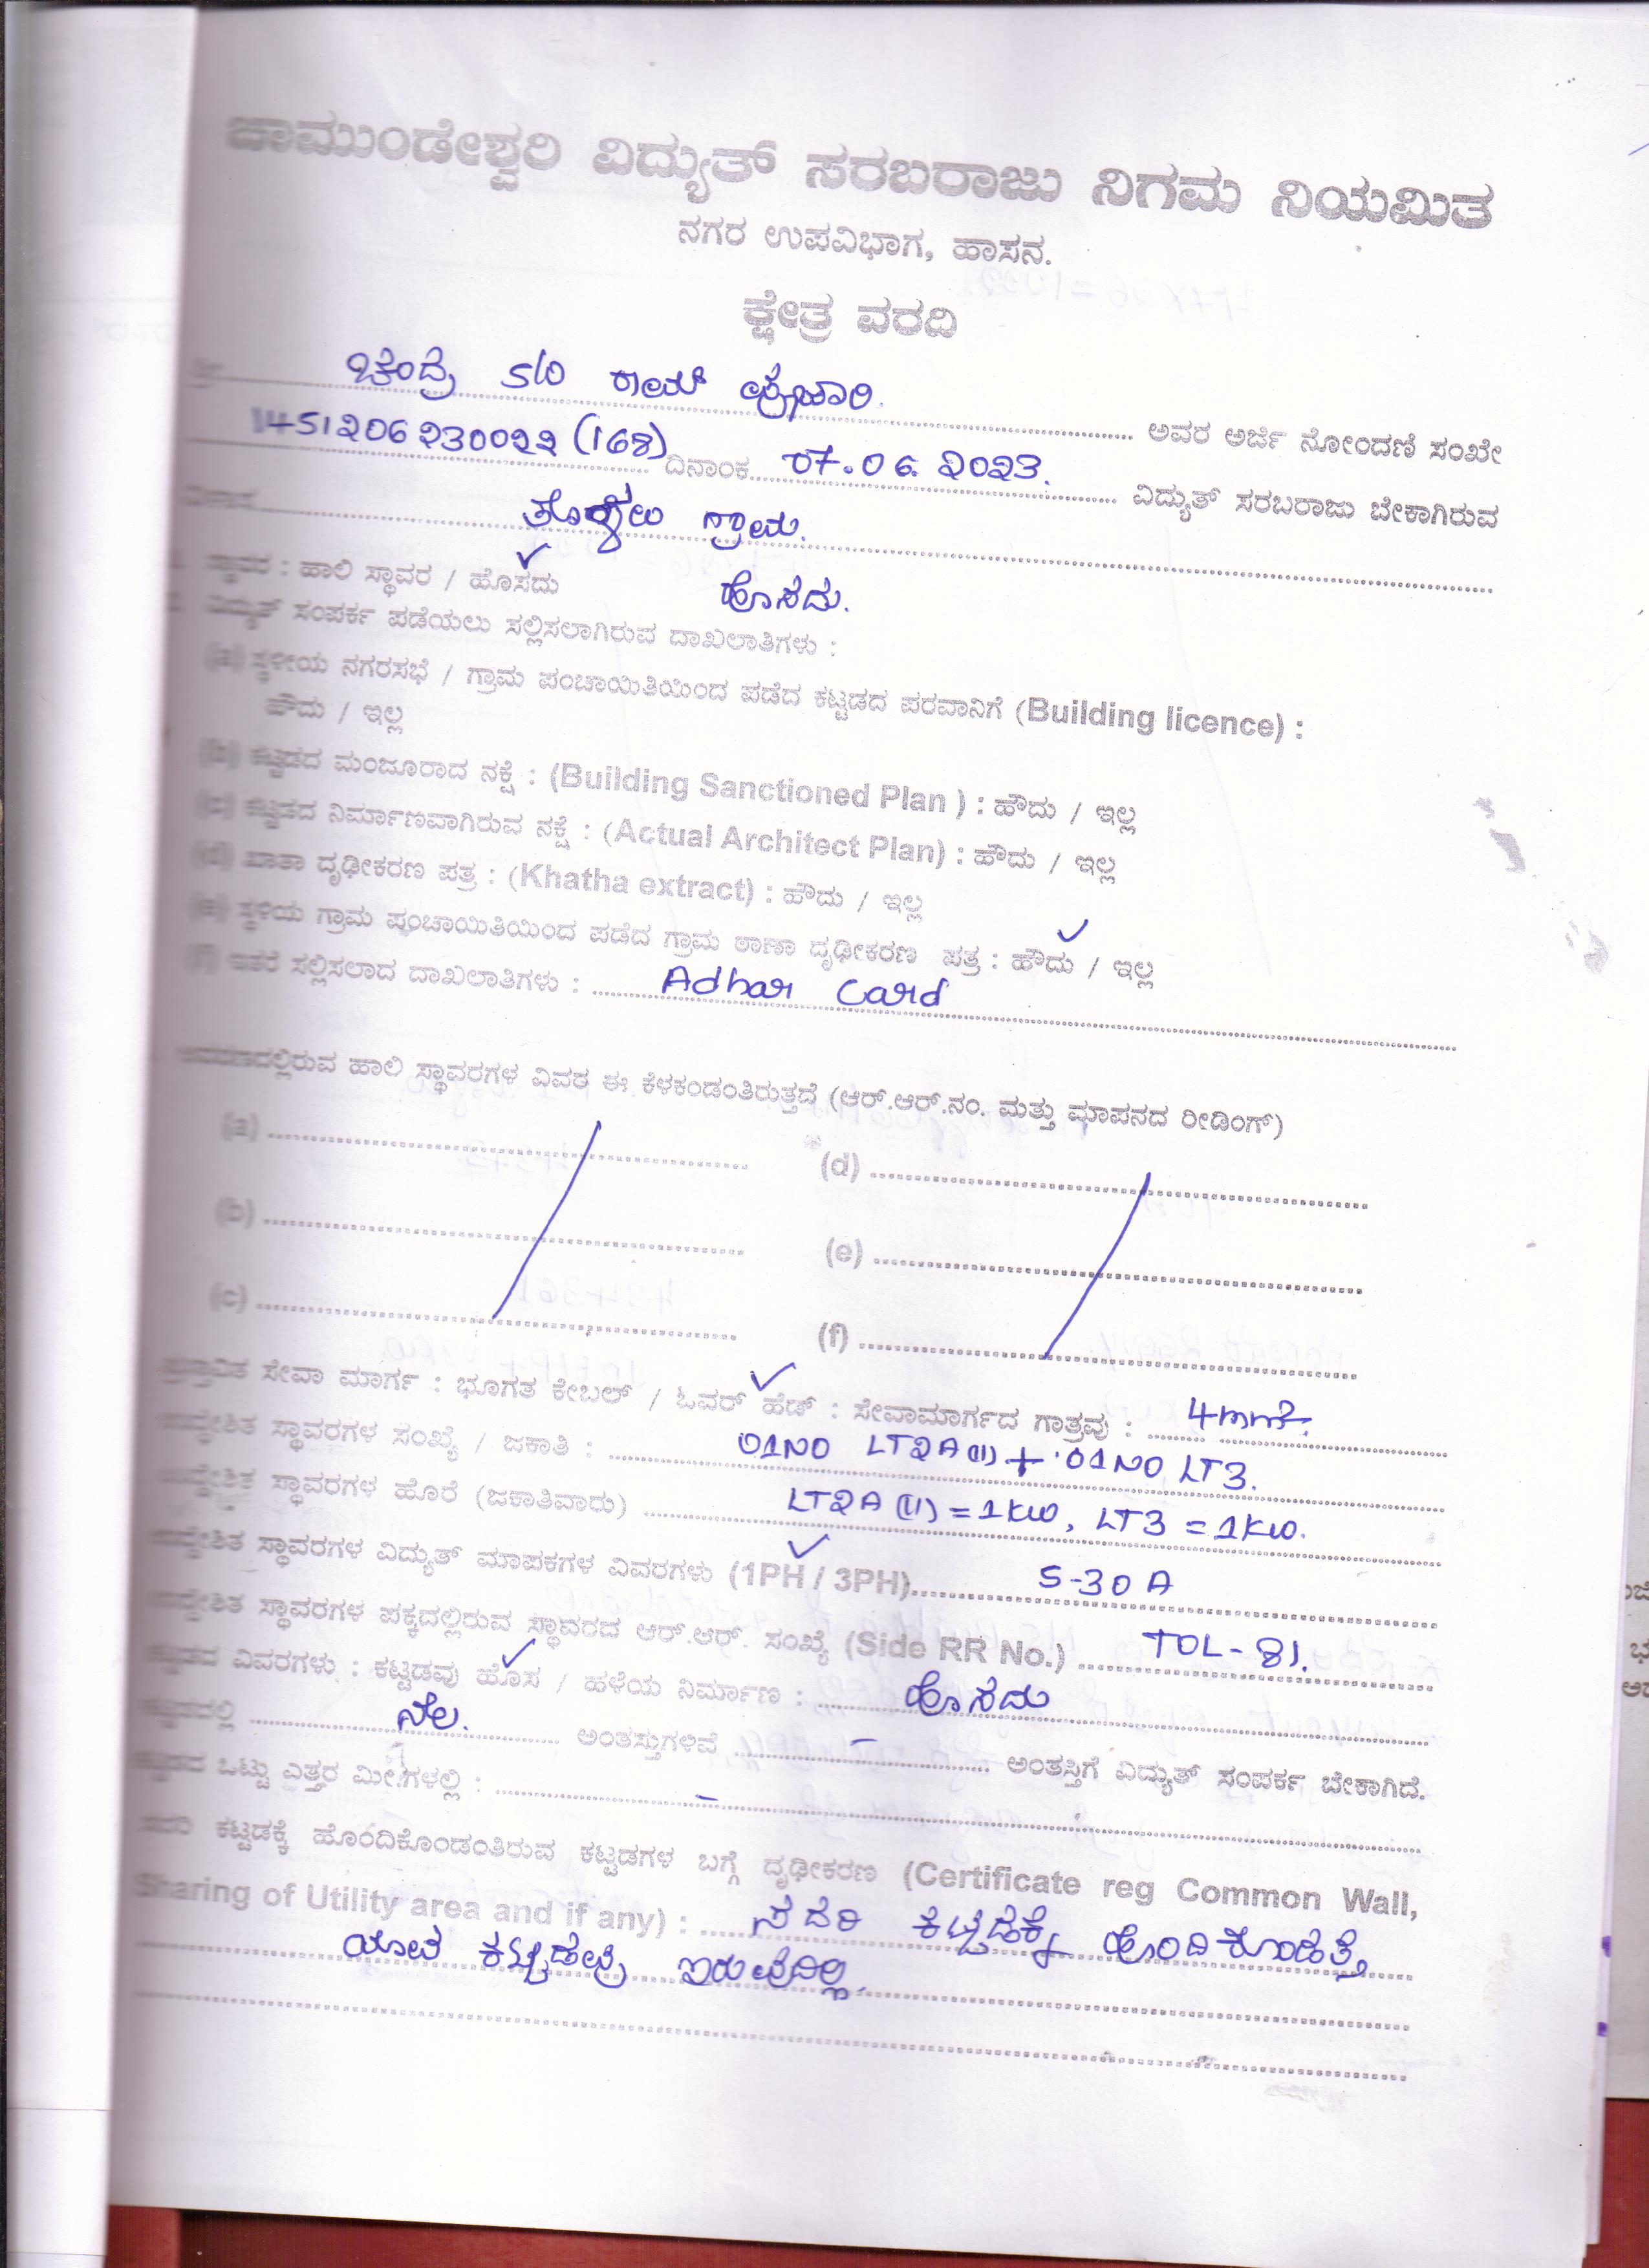 ಚಾಮುಂಡೇಶ್ವರಿ ವಿದ್ಯುತ್ ಸರಬರಾಜು ನಿಗಮ ನಿಯಮಿತ
ನಗರ ಉಪವಿಭಾಗ, ಹಾಸನ.
ಕ್ಷೇತ್ರ ವರದಿ
ಚಂದ್ರೆ S/O ರಾಮ್ ಪೂಜಾರಿ.
ಅವರ ಅರ್ಜಿ ನೋಂದಣಿ ಸಂಖೇ
1451206230022 (168) ದಿನಾಂಕ 07.06.2023. ವಿದ್ಯುತ್ ಸರಬರಾಜು ಬೇಕಾಗಿರುವ
ಗ್ರಾಮ.
ಸ್ಥಾವರ : ಹಾಲಿ ಸ್ಥಾವರ / ಹೊಸದು ಹೊಸದು.
ವಿದ್ಯುತ್ ಸಂಪರ್ಕ ಪಡೆಯಲು ಸಲ್ಲಿಸಲಾಗಿರುವ ದಾಖಲಾತಿಗಳು :
(a) ಸ್ಥಳೀಯ ನಗರಸಭೆ / ಗ್ರಾಮ ಪಂಚಾಯಿತಿಯಿಂದ ಪಡೆದ ಕಟ್ಟಡದ ಪರವಾನಿಗೆ (Building licence) :
ಹೌದು / ಇಲ್ಲ
(b) ಕಟ್ಟಡದ ಮಂಜೂರಾದ ನಕ್ಷೆ : (Building Sanctioned Plan ) : ಹೌದು / ಇಲ್ಲ
(c) ಕಟ್ಟಡದ ನಿರ್ಮಾಣವಾಗಿರುವ ನಕ್ಷೆ : (Actual Architect Plan) : ಹೌದು / ಇಲ್ಲ
(d) ಖಾತಾ ದೃಢೀಕರಣ ಪತ್ರ : (Khatha extract) : ಹೌದು / ಇಲ್ಲ
(e) ಸ್ಥಳಿಯ ಗ್ರಾಮ ಪಂಚಾಯಿತಿಯಿಂದ ಪಡೆದ ಗ್ರಾಮ ಠಾಣಾ ದೃಢೀಕರಣ ಪತ್ರ : ಹೌದು / ಇಲ್ಲ
(f) ಇತರೆ ಸಲ್ಲಿಸಲಾದ ದಾಖಲಾತಿಗಳು : Adhar Card
ಆವರಣದಲ್ಲಿರುವ ಹಾಲಿ ಸ್ಥಾವರಗಳ ವಿವರ ಈ ಕೆಳಕಂಡಂತಿರುತ್ತದೆ (ಆರ್.ಆರ್.ನಂ. ಮತ್ತು ಮಾಪನದ ರೀಡಿಂಗ್)
(a) (d)
(b) (e)
(c) (f)
ಪ್ರಸ್ತಾವಿತ ಸೇವಾ ಮಾರ್ಗ : ಭೂಗತ ಕೇಬಲ್ / ಓವರ್ ಹೆಡ್ : ಸೇವಾಮಾರ್ಗದ ಗಾತ್ರವು : 4mm².
ಉದ್ದೇಶಿತ ಸ್ಥಾವರಗಳ ಸಂಖ್ಯೆ / ಜಕಾತಿ : 01NO LT2A(ii) + 01NO LT3.
ಉದ್ದೇಶಿತ ಸ್ಥಾವರಗಳ ಹೊರೆ (ಜಕಾತಿವಾರು) LT2A (ii) = 1KW, LT3 = 1KW.
ಉದ್ದೇಶಿತ ಸ್ಥಾವರಗಳ ವಿದ್ಯುತ್ ಮಾಪಕಗಳ ವಿವರಗಳು (1PH / 3PH) 5-30 A
ಉದ್ದೇಶಿತ ಸ್ಥಾವರಗಳ ಪಕ್ಕದಲ್ಲಿರುವ ಸ್ಥಾವರದ ಆರ್.ಆರ್. ಸಂಖ್ಯೆ (Side RR No.) TOL-81.
ಕಟ್ಟಡದ ವಿವರಗಳು : ಕಟ್ಟಡವು ಹೊಸ / ಹಳೆಯ ನಿರ್ಮಾಣ : ಹೊಸದು
ಕಟ್ಟಡದಲ್ಲಿ ನೆಲ. ಅಂತಸ್ತುಗಳಿವೆ - ಅಂತಸ್ತಿಗೆ ವಿದ್ಯುತ್ ಸಂಪರ್ಕ ಬೇಕಾಗಿದೆ.
ಕಟ್ಟಡದ ಒಟ್ಟು ಎತ್ತರ ಮೀ.ಗಳಲ್ಲಿ : -
ಸದರಿ ಕಟ್ಟಡಕ್ಕೆ ಹೊಂದಿಕೊಂಡಂತಿರುವ ಕಟ್ಟಡಗಳ ಬಗ್ಗೆ ದೃಢೀಕರಣ (Certificate reg Common Wall,
Sharing of Utility area and if any) : ಸದರಿ ಕಟ್ಟಡಕ್ಕೆ ಹೊಂದಿಕೊಂಡತ್ತೆ
ಯಾವ ಕಟ್ಟಡವು ಇರುವುದಿಲ್ಲ.